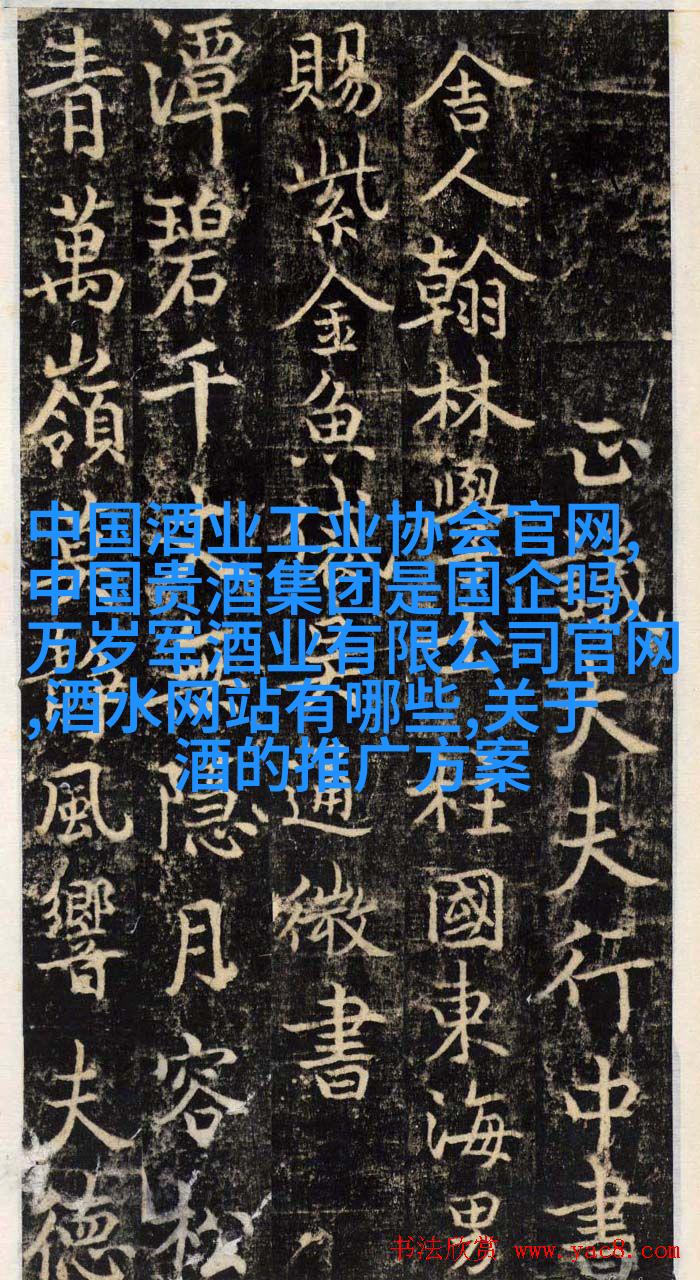 正議大夫行中書
舍人翰林學柱國東海男
賜紫金魚袋通微書
潭碧千丈隱月容松
青萬嶺風響夫德
中国酒业工业协会官网,
中国贵酒集团是国企吗,
万岁军酒业有限公司官网
,酒水网站有哪些,关于
酒的推广方案
书法欣赏 www.yac8.com